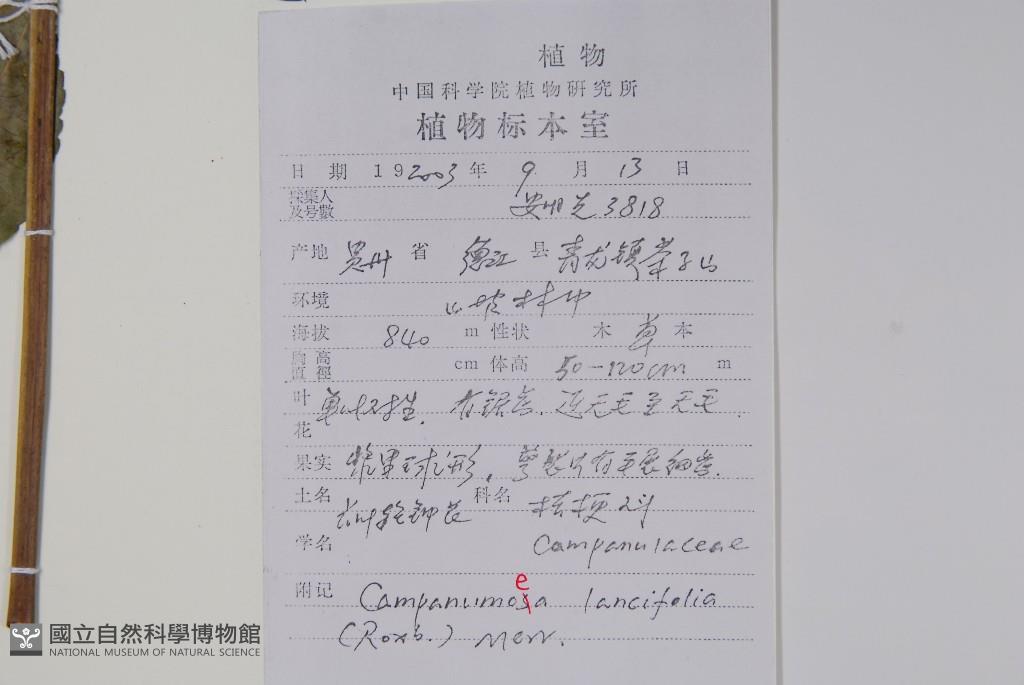 植物
中国科学院植物研究所
植物标本室
日期 19 2003 年 9 月 13 日
採集人
及号數 安明先 3818
产地 贵州 省 德江 县 青龙镇
环境 山坡林中
海拔 840 m 性状 木 草 本
胸高
直徑 cm 体高 50-120cm m
叶 单叶对生. 有锯齿. 近无毛至无毛.
花
果实 浆果球形, 萼裂片有
土名 长叶轮钟花 科名 桔梗科
学名 Campanulaceae
e
附记 Campanumoea lancifolia
(Roxb.) Merr.
國立自然科學博物館
NATIONAL MUSEUM OF NATURAL SCIENCE